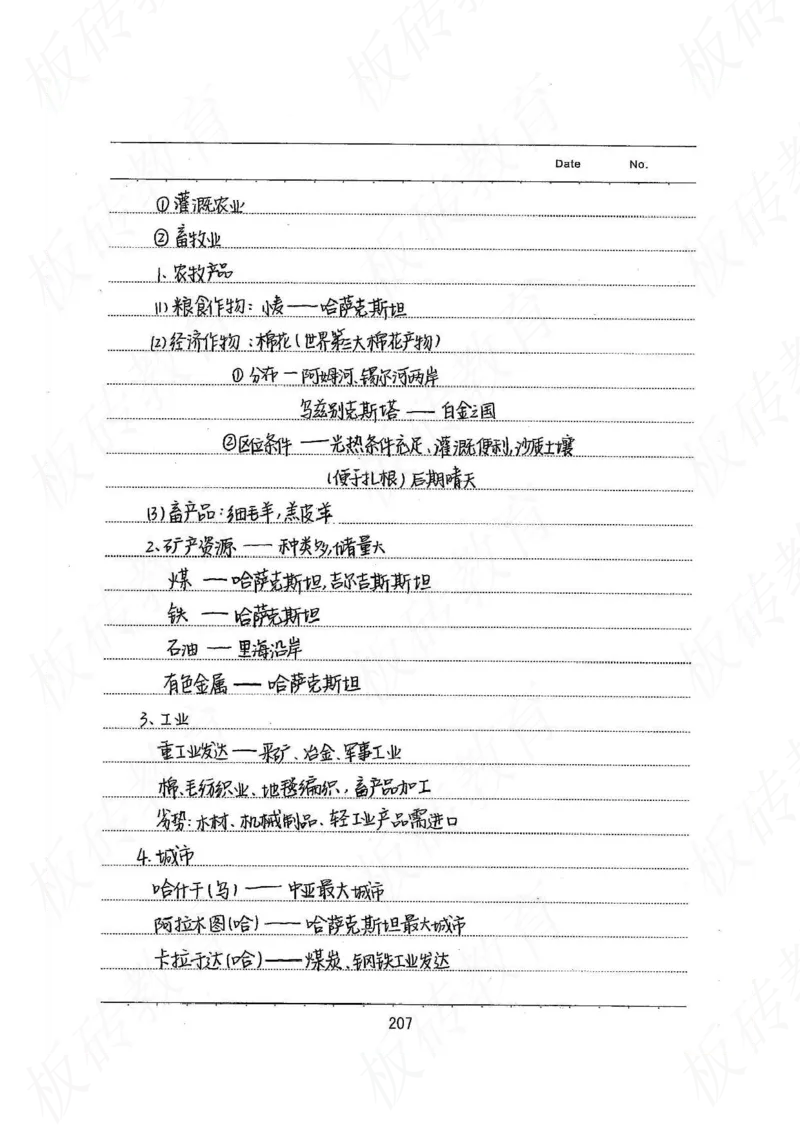 Date No.
①灌溉农业
②畜牧业
1、农牧产品
(1)粮食作物：小麦——哈萨克斯坦
(2)经济作物：棉花(世界第三大棉花产物)
①分布—阿姆河、锡尔河两岸
乌兹别克斯塔——白金之国
②区位条件——光热条件充足、灌溉便利,沙质土壤
(便于扎根)后期晴天
(3)畜产品：细毛羊,羔皮羊
2、矿产资源——种类多,储量大
煤——哈萨克斯坦,吉尔吉斯斯坦
铁——哈萨克斯坦
石油——里海沿岸
有色金属——哈萨克斯坦
3、工业
重工业发达——采矿、冶金、军事工业
棉、毛纺织业、地毯编织，畜产品加工
劣势：木材、机械制品、轻工业产品需进口
4.城市
哈什干(乌)——中亚最大城市
阿拉木图(哈)——哈萨克斯坦最大城市
卡拉干达(哈)——煤炭、钢铁工业发达
207
板砖教育